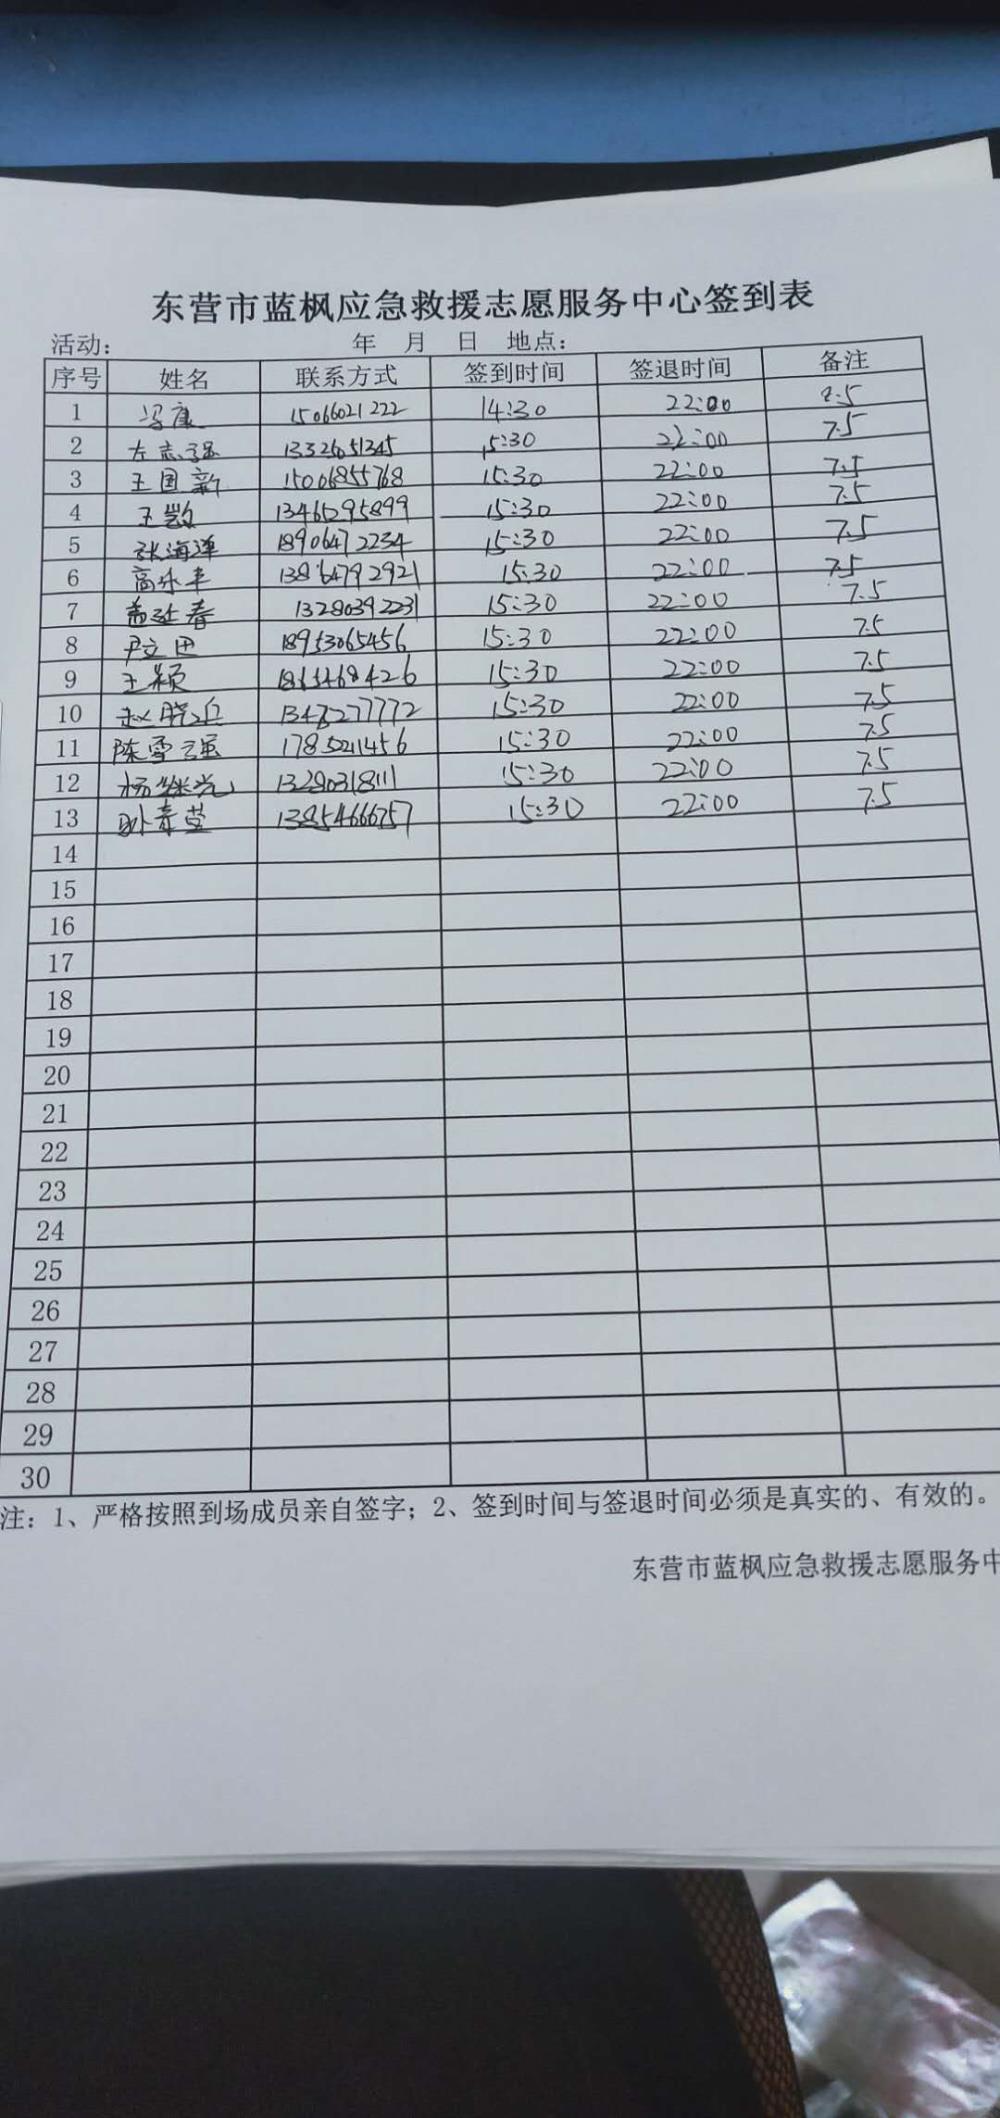 东营市蓝枫应急救援志愿服务中心签到表
活动： 年 月 日 地点：
序号 姓名 联系方式 签到时间 签退时间 备注
1 冯康 15066021222 14:30 22:00 8.5
2 左志强 13326051345 15:30 22:00 7.5
3 王国新 15006855768 15:30 22:00 7.5
4 王凯 13465295899 15:30 22:00 7.5
5 张海洋 18906472234 15:30 22:00 7.5
6 高永丰 13864792921 15:30 22:00 7.5
7 孟延春 13280392231 15:30 22:00 7.5
8 尹立田 18953065456 15:30 22:00 7.5
9 王颖 15:30 22:00 7.5
10 赵晓兵 15:30 22:00 7.5
11 陈雪强 1785021456 15:30 22:00 7.5
12 杨继光 13280318111 15:30 22:00 7.5
13 青莹 13854666757 15:30 22:00 7.5
14
15
16
17
18
19
20
21
22
23
24
25
26
27
28
29
30
注：1、严格按照到场成员亲自签字；2、签到时间与签退时间必须是真实的、有效的。
东营市蓝枫应急救援志愿服务中